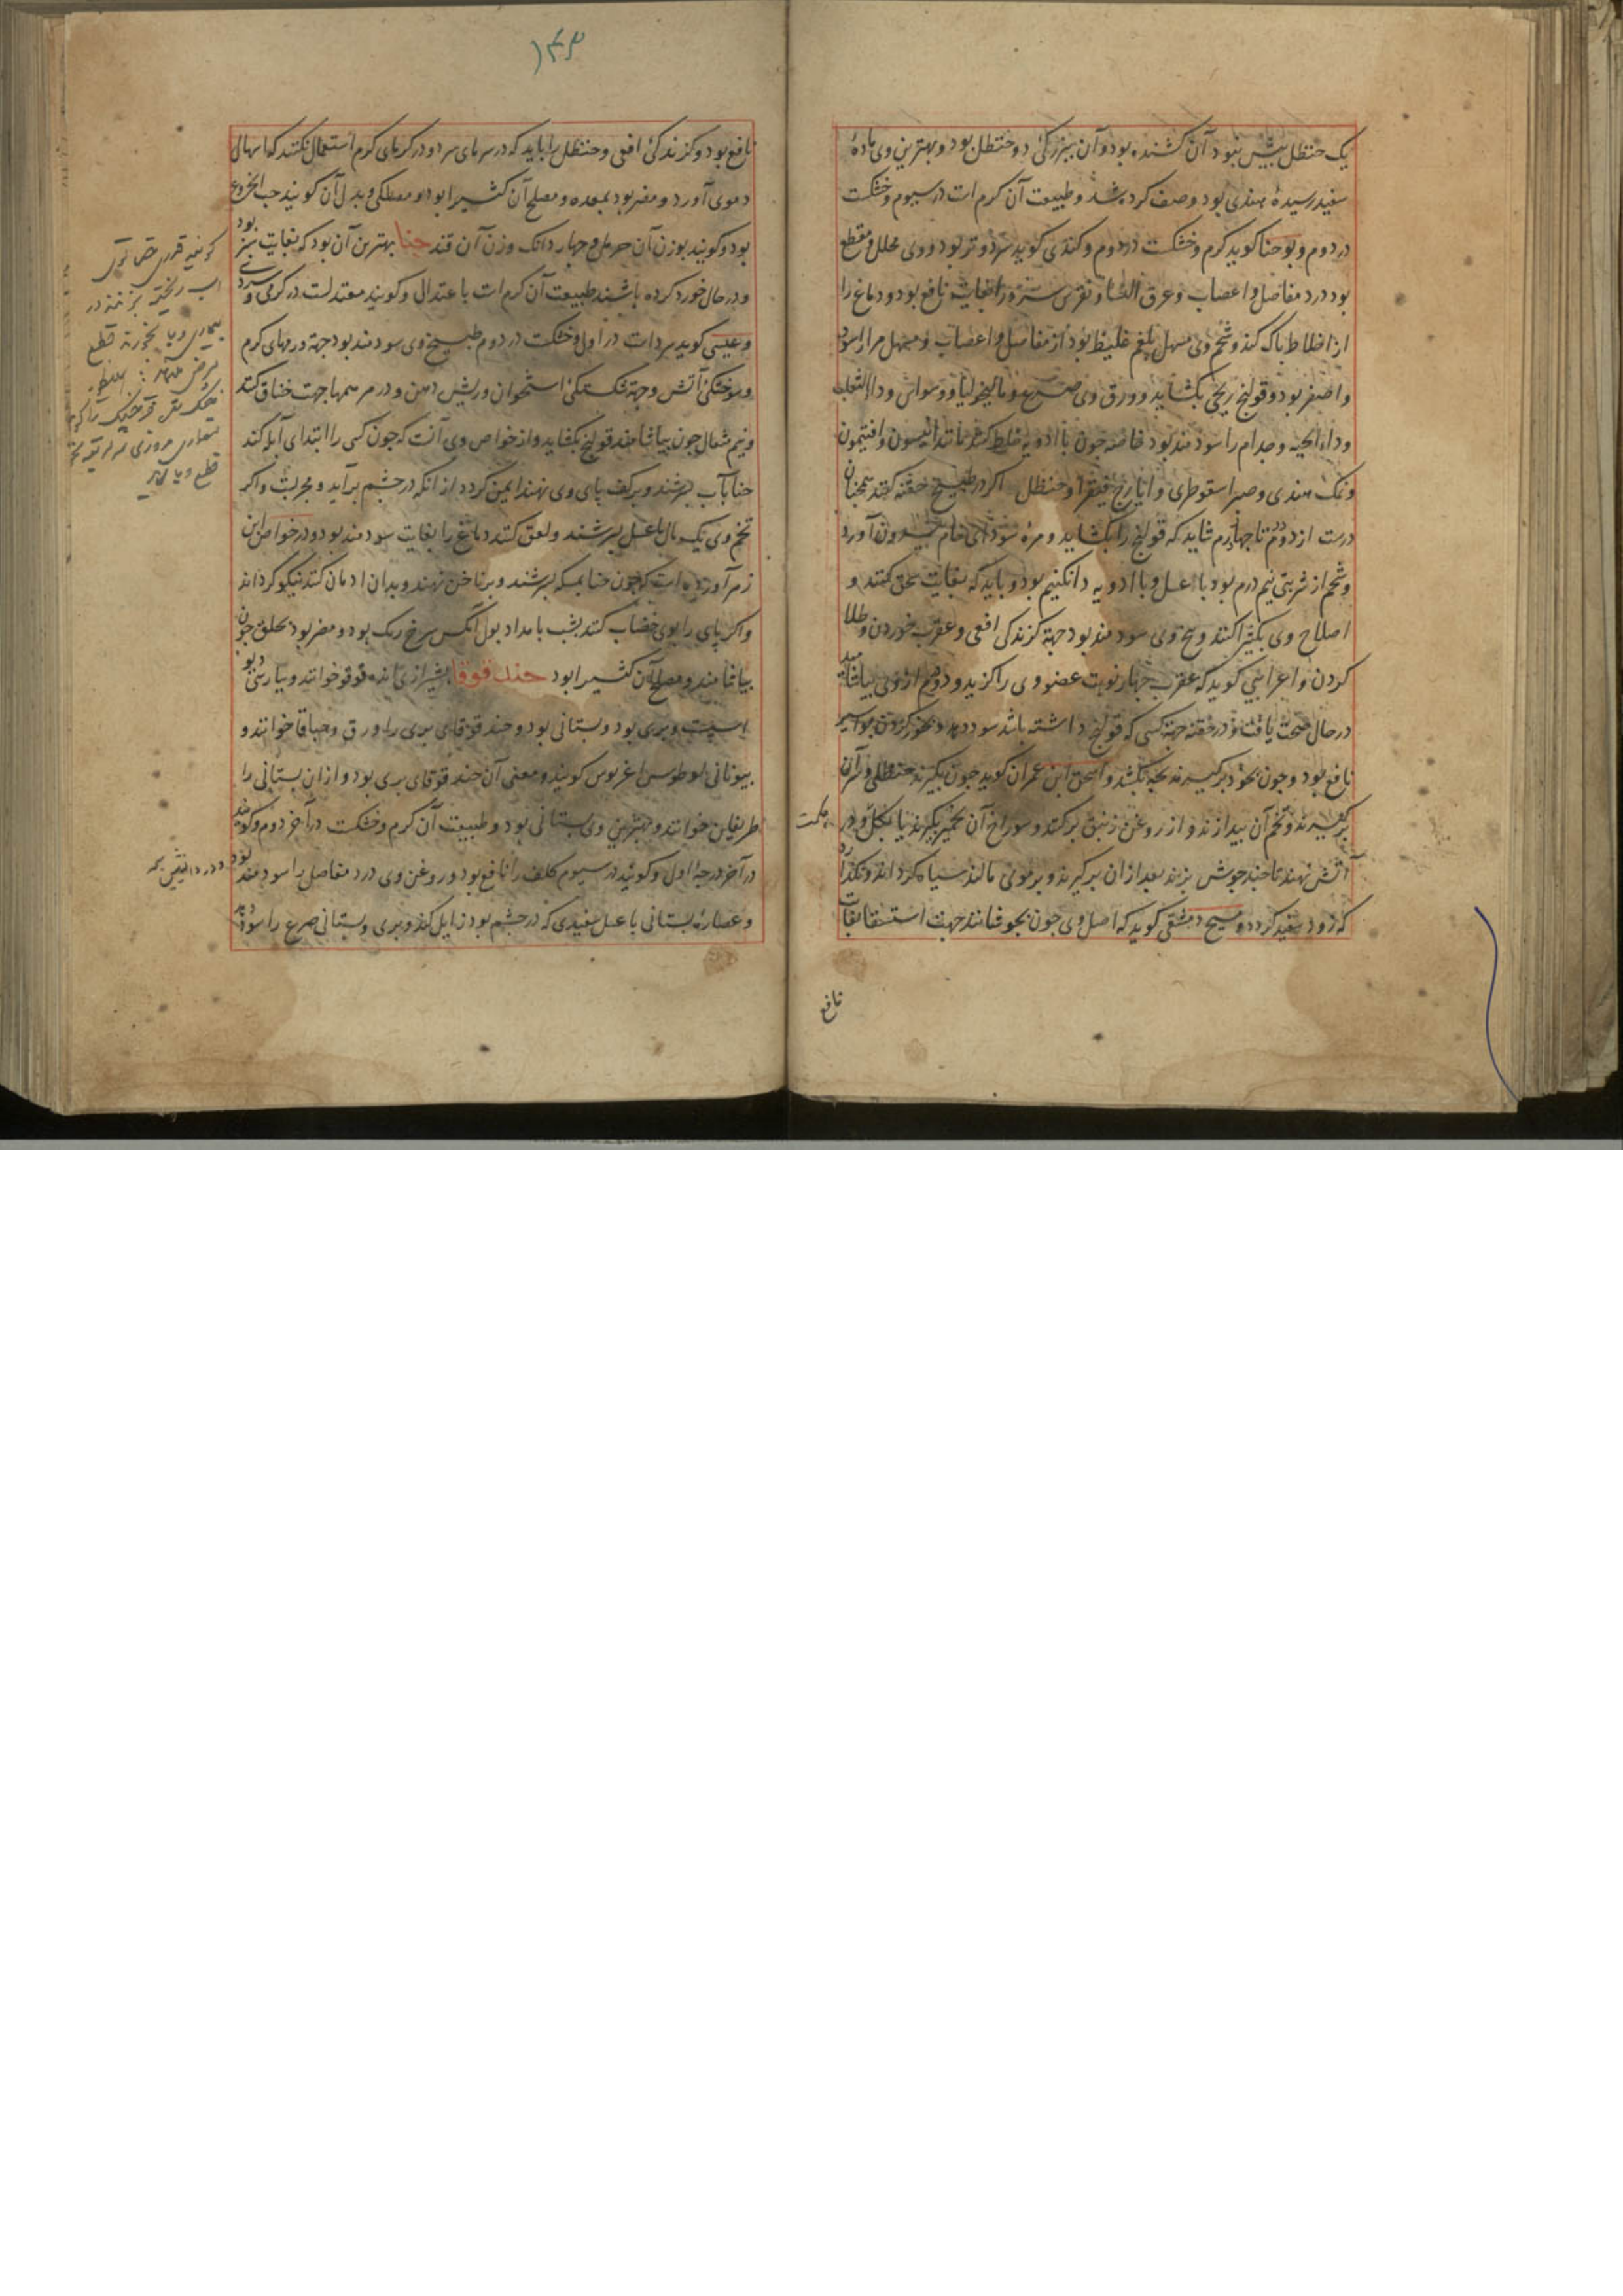 یک حنظل بیش نبود آن کشنده بود و آن ببزرگی دو حنظل بود و بهترین وی ماده
سفید رسیده هندی بود وصف کرده شد و طبیعت آن کرم است در سیوم و خشکست
در دوم و یوحنا کوید کرم و خشکست در دوم و کندی کوید سرد و تر بود و وی محلل و مقطع
بود درد مفاصل و اعصاب و عرق النسا و نقرس سرد را بغایت نافع بود و دماغ را
از اخلاط پاک کند و شحم وی مسهل بلغم غلیظ بود از مفاصل و اعصاب و مسهل مرار اسود
و اصفر بود و قولنج ریحی بکشاید و ورق وی صرع و مالیخولیا و وسواس و داء الثعلب
و داء الحیه و جدام را سودمند بود خاصه چون با ادویه خلط کنند مانند انیسون و افتیمون
و نمک هندی و صبر اسقوطری و ایارج فیقرا و حنظل اکر در طبیخ حقنه کنند همچنان
درست از دو درم تا چهار درم شاید که قولنج را بکشاید و مره سودای خام بیرون آورد
و شحم از شربتی نیم درم بود با عسل و با ادویه دانکنیم بود و باید که بغایت سحق کنند و
اصلاح وی بکثیرا کنند و بیخ وی سودمند بود جهة کزندکی افعی و عقرب خوردن و طلا
کردن و اعرابی کوید که عقرب چهار نوبت عضو وی را کزید و دو درم از وی بیاشامید
در حال صحت یافت و در حقنه جهة کسی که قولنج داشته باشد سود دهد و بخور کردن بواسیر
نافع بود و چون بخود برکیرند بچه بکشد و اسحق ابن عمران کوید چون بکیرند حنظلی و سر آن
برکیرند و تخم آن بیندازند و از روغن زنبق پر کنند و سوراخ آن بخمیر بکیرند یا بکل و در
حکمت
آتش نهند تا چند جوش بزند بعد از آن برکیرند و بر موی مالند سیاه کرداند و نکذارد
که زود سفید کردد و مسیح دمشقی کوید که اصل وی چون بجوشانند جهت استسقا بغایت
نافع
۱۴۹
نافع بود و کزندکی افعی و حنظل را باید که در سرمای سرد و در کرمای کرم استعمال نکنند که اسهال
دموی آورد و مضر بود بمعده و مصلح آن کثیرا بود و مصطکی و بدل آن کویند حب الخروع
بود و کویند بوزن آن حرمل و چهار دانک وزن آن قند حنا بهترین آن بود که بغایت سبز بود
و در حال خورد کرده باشند طبیعت آن کرم است باعتدال و کویند معتدلست در کرمی و سردی
و عیسی کوید سرد است در اول و خشکست در دوم طبیخ وی سودمند بود جهة ورمهای کرم
و سوختکی آتش و جهة شکستکی استخوان و ریش دهن و در مرهمها جهت خناق کنند
و نیم مثقال چون بیاشامند قولنج بکشاید و از خواص وی آنست که چون کسی را ابتدای آبله کند
حنا بآب بسرشند و بر کف پای وی نهند ایمن کردد از انکه در چشم برآید و مجربست و اکر
تخم وی یک مثقال با عسل بسرشند و لعق کنند دماغ را بغایت سودمند بود و در خواص ابن
زهر آورده است که چون حنا بمسکه بسرشند و بر ناخن نهند و بدان ادمان کنند نیکو کرداند
و اکر پای را بوی خضاب کنند بشب بامداد بول آنکس سرخ رنک بود و مضر بود بحلق چون
بیاشامند و مصلح آن کثیرا بود حندقوقا بشیرازی انده قوقو خوانند و بپارسی دیو
اسپست و بری بود و بستانی بود و حندقوقای بری را ورق و حباقا خوانند و
بیونانی لوطوس اغریوس کویند و معنی آن حندقوقای بری بود و از ان بستانی را
طریفلن خوانند و بهترین وی بستانی بود و طبیعت آن کرم و خشکست در آخر دوم و کویند
در آخر درجه اول و کویند در سیوم کلف را نافع بود و روغن وی درد مفاصل را سودمند بود
و عصاره بستانی با عسل سفیدی که در چشم بود زایل کند و بری و بستانی صرع را سود دهد